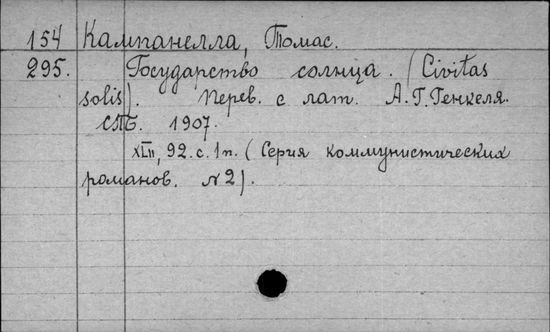 154 Кампанелла, Томас.
295. Государство солнца. (Civitas
solis). Перев. с лат. А. Г. Генкеля.
СПБ. 1907.
XLII, 92. с. 1 п. (Серия коммунистических
романов. № 2).